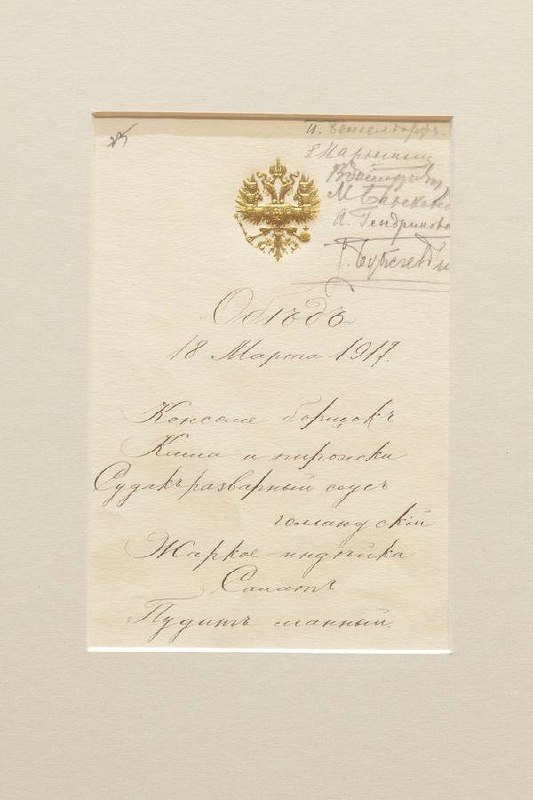 25
П. Бенкендорфъ.
Е Нарышкин
М Бѣляев
А. Гендрикова
Обѣдъ
18 Марта 1917.
Консоме борщокъ
Каша и пирожки
Судакъ разварный соусъ
голандскій
Жаркое индѣйка
Салатъ
Пудингъ манный.